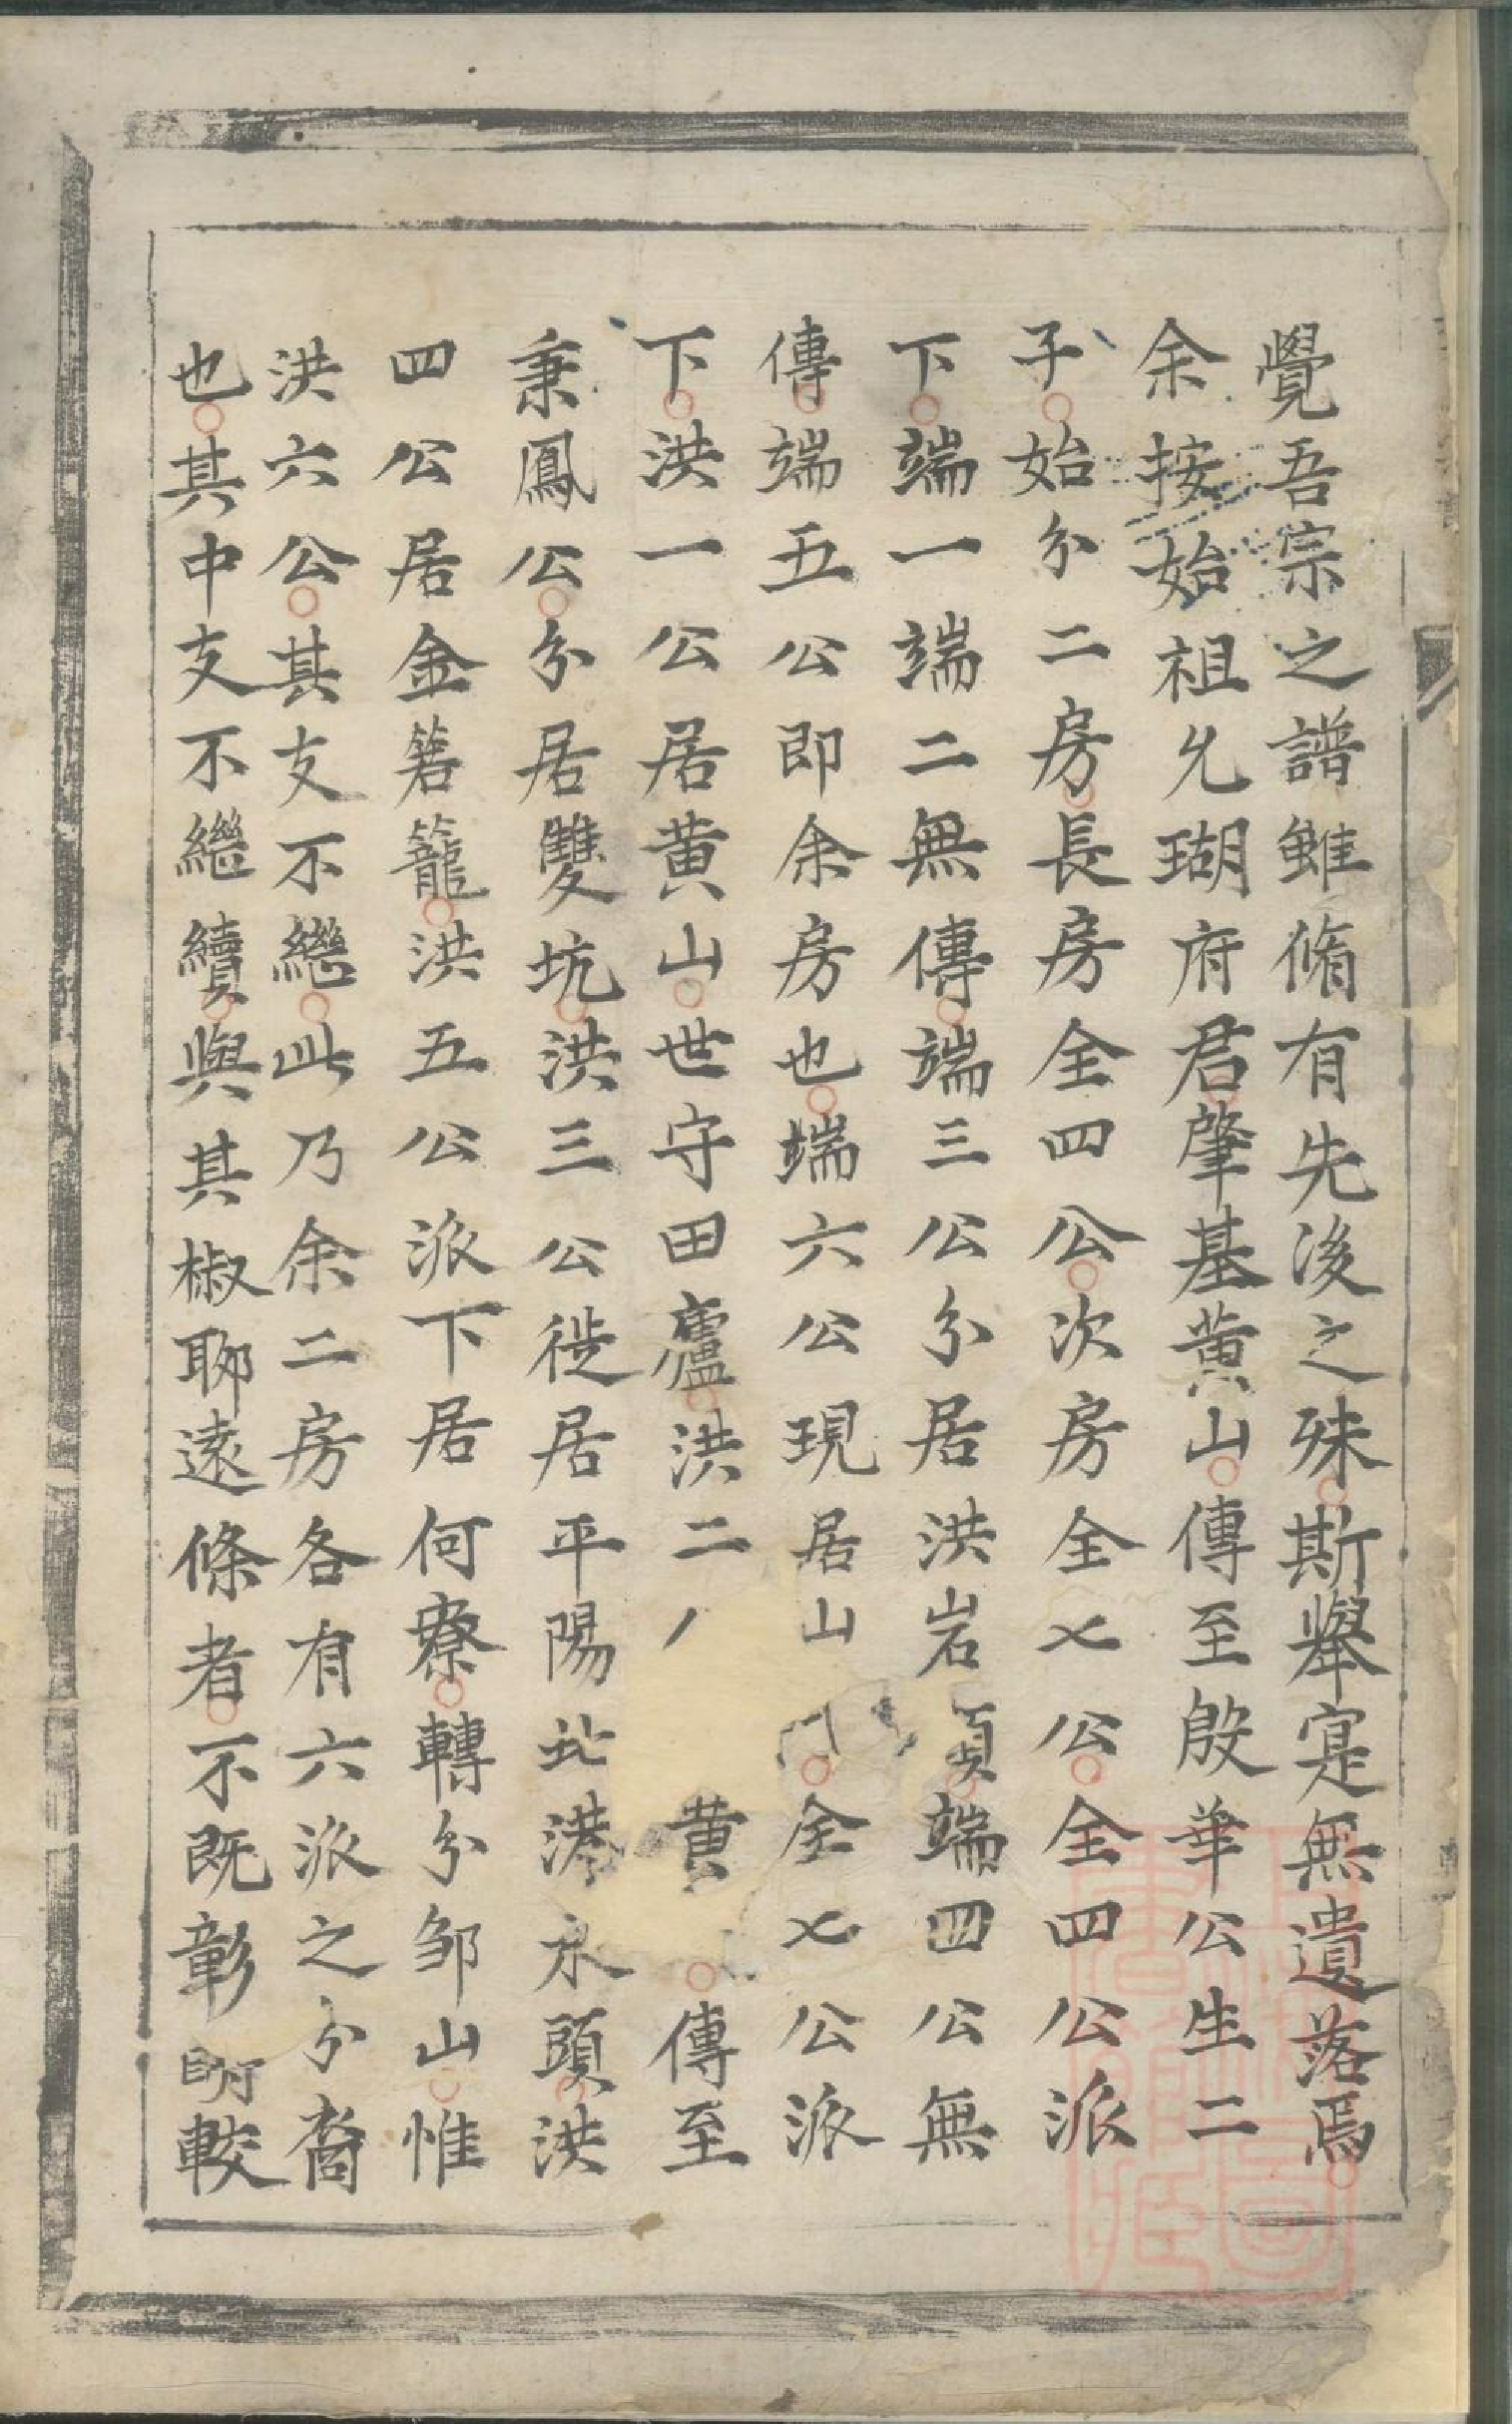 覺吾宗之譜雖脩有先後之殊斯舉寔無遺落焉
余按始祖允瑚府君肇基黃山傳至殷華公生二
子始分二房長房全四公次房全七公全四公派
下端一端二無傳端三公分居洪岩端四公無
傳端五公即余房也端六公現居山全七公派
下洪一公居黃山世守田廬洪二黃傳至
秉鳳公分居雙坑洪三公徙居平陽北港水頭洪
四公居金箬籠洪五公派下居何寮轉分邹山惟
洪六公其支不繼此乃余二房各有六派之分裔
也其中支不繼續與其椒聊遠條者不既彰明較